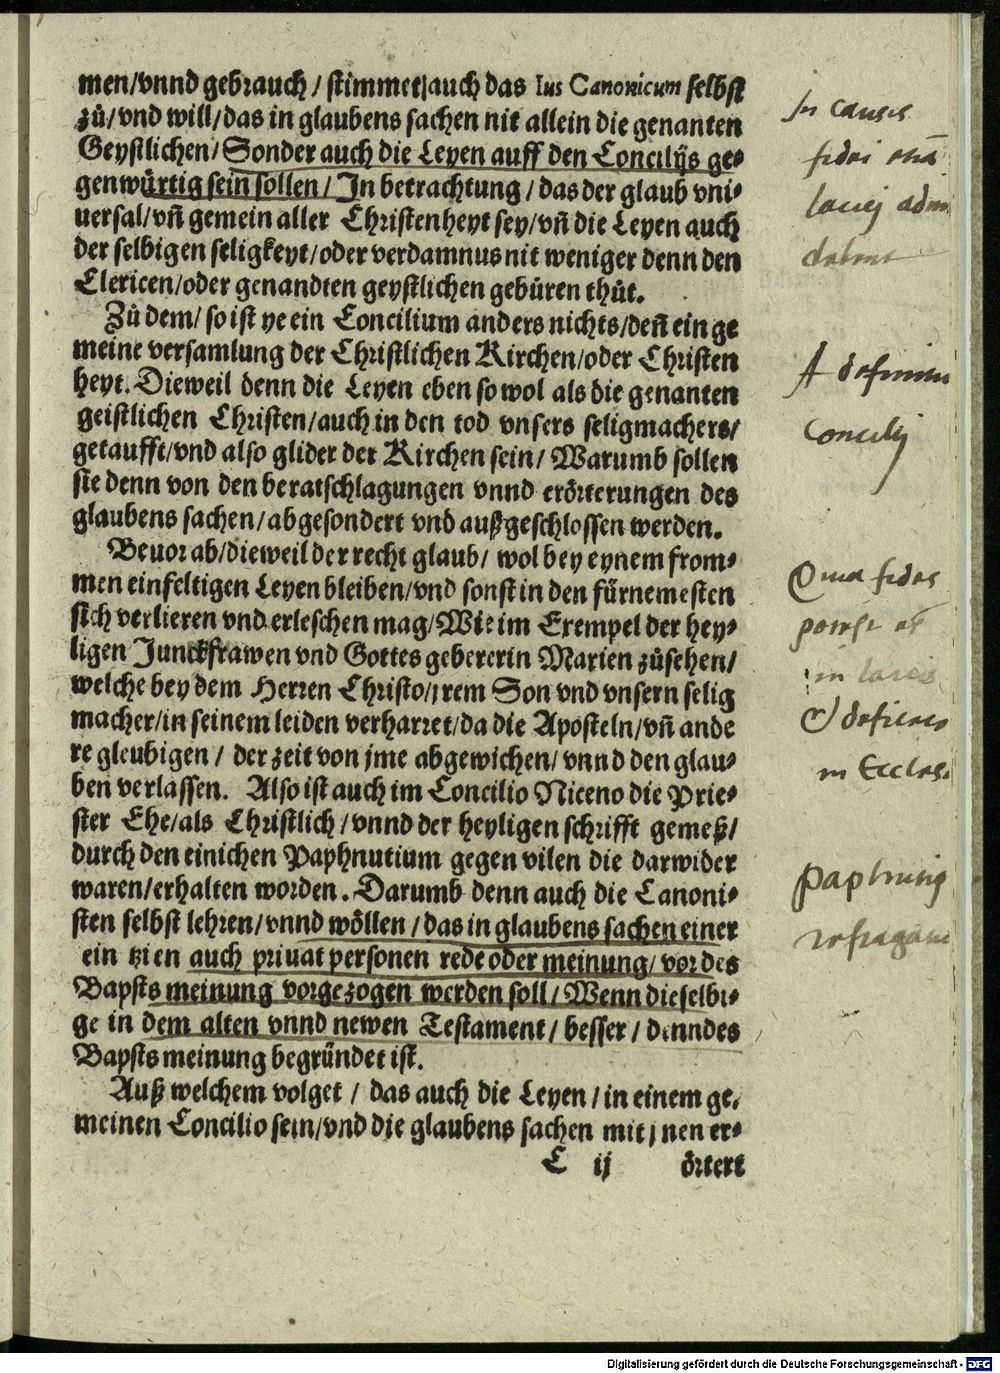 men/vnnd gebrauch/ stimmet auch das Ius Canonicum selbst
zů/vnd will/das in glaubens sachen nit allein die genanten
Geystlichen/ Sonder auch die Leyen auff den Concilijs ge⸗
genwürtig sein sollen/ In betrachtung/ das der glaub vni⸗
uersal/vñ gemein aller Christenheyt sey/vñ die Leyen auch
der selbigen seligkeyt/oder verdamnus nit weniger denn den
Clericen/oder genandten geystlichen gebüren thůt.
Zů dem/ so ist ye ein Concilium anders nichts/deñ ein ge
meine versamlung der Christlichen Kirchen/oder Christen
heyt. Dieweil denn die Leyen eben so wol als die genanten
geistlichen Christen/auch in den tod vnsers seligmachers/
getaufft/vnd also glider der Kirchen sein/ Warumb sollen
sie denn von den beratschlagungen vnnd erörterungen des
glaubens sachen/abgesondert vnd außgeschlossen werden.
Beuor ab/dieweil der recht glaub/ wol bey eynem from⸗
men einfeltigen Leyen bleiben/vnd sonst in den fürnemesten
sich verlieren vnd erleschen mag/Wie im Exempel der hey⸗
ligen Junckfrawen vnd Gottes gebererin Marien zůsehen/
welche bey dem Herren Christo/jrem Son vnd vnsern selig
macher/in seinem leiden verharret/da die Aposteln/vñ ande
re gleubigen/ der zeit von jme abgewichen/vnnd den glau⸗
ben verlassen. Also ist auch im Concilio Niceno die Prie⸗
ster Ehe/als Christlich/vnnd der heyligen schrifft gemeß/
durch den einichen Paphnutium gegen vilen die darwider
waren/erhalten worden. Darumb denn auch die Canoni⸗
sten selbst lehren/vnnd wöllen/das in glaubens sachen einer
ein tzien auch priuat personen rede oder meinung/ vor des
Bapsts meinung vorgezogen werden soll/ Wenn dieselbi⸗
ge in dem alten vnnd newen Testament/ besser/ denn des
Bapsts meinung begründet ist.
Auß welchem volget/ das auch die Leyen/in einem ge⸗
meinen Concilio sein/vnd die glaubens sachen mit jnen er⸗
C ij örtert
In causis
fidei
laicj
debent
A
Concilij
Quia fides
potest
in laicis
in Eccles
Paphnutij
Digitalisierung gefördert durch die Deutsche Forschungsgemeinschaft - DFG